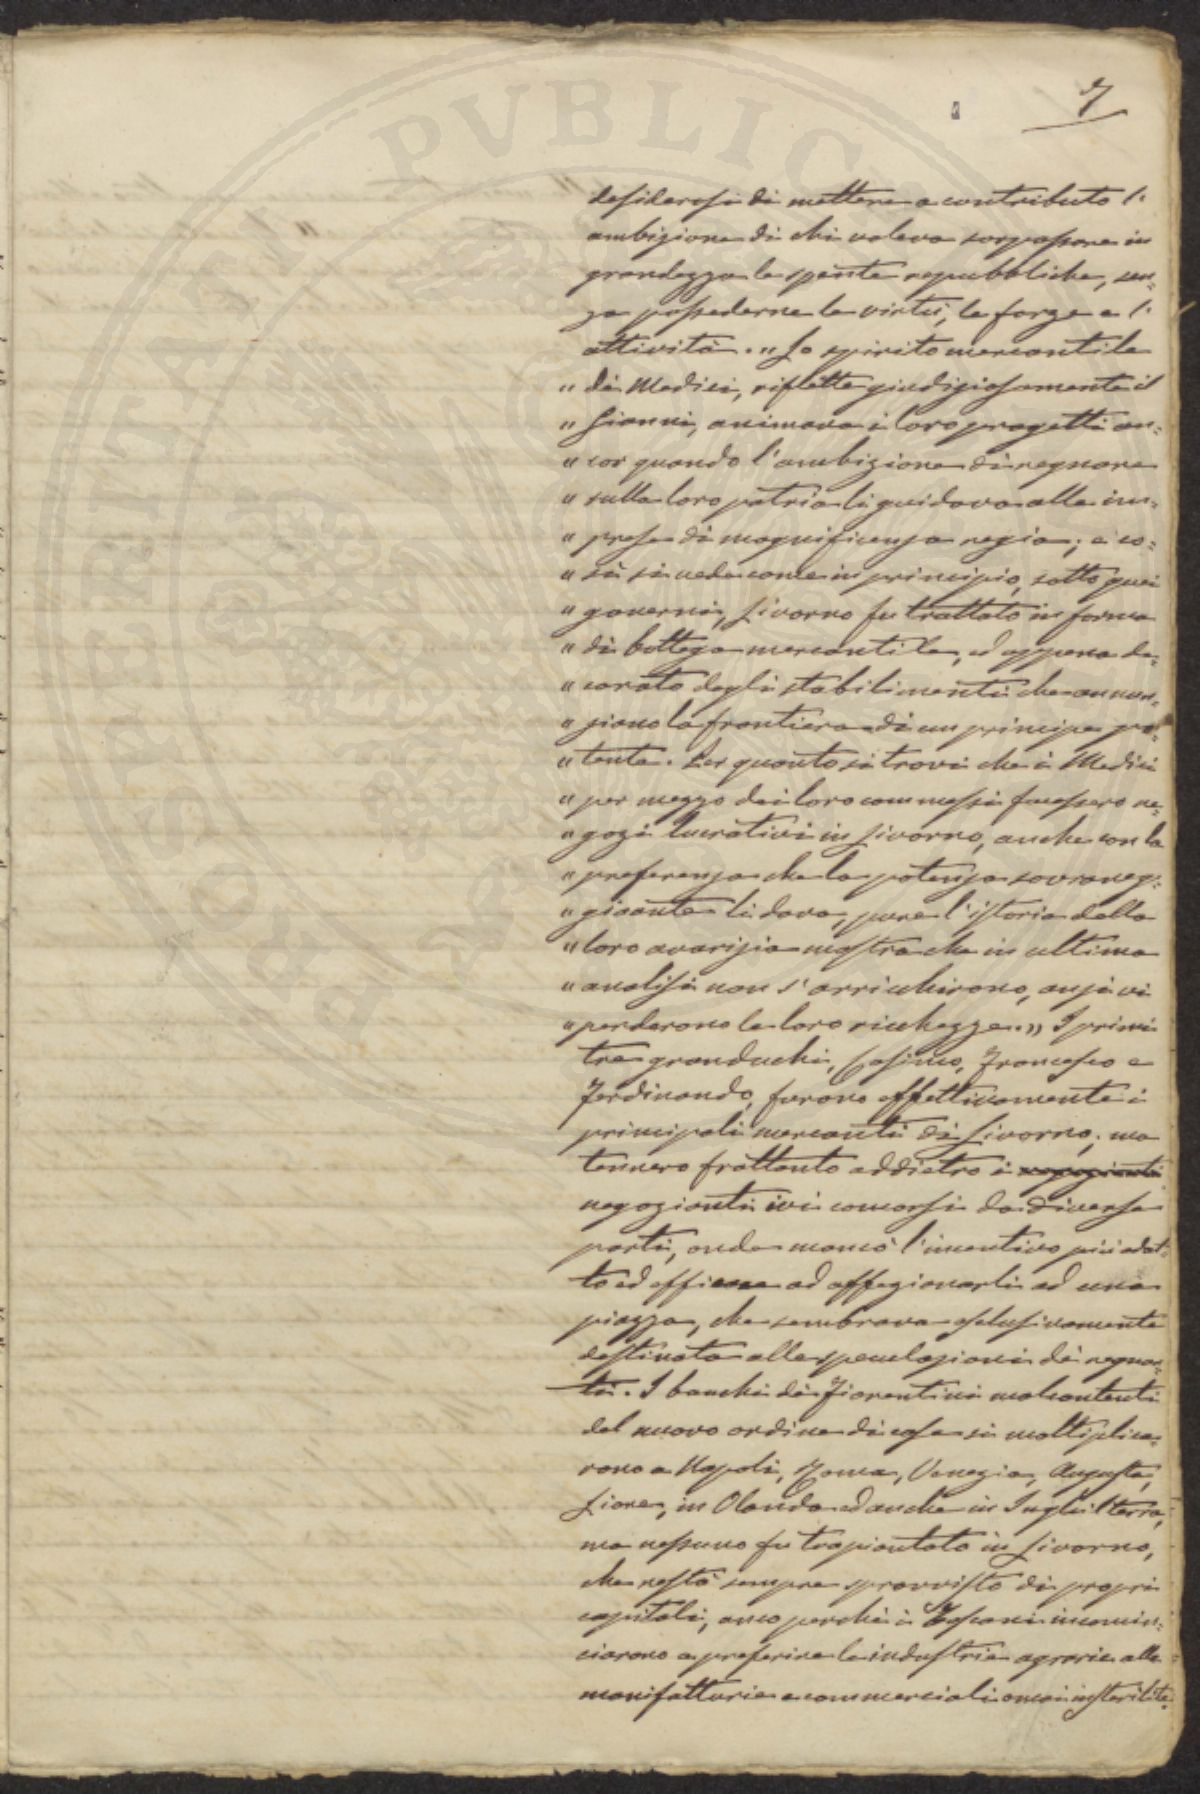 7
desiderosi di mettere a contributo l'
ambizione di chi voleva sorpassare in
grandezza le spente repubbliche, sen-
za possederne le virtù, le forze e l'
attività. „ Lo spirito mercantile
„ dè Medici, riflette giudiziosamente il
„ Gianni, animava i loro progetti an-
„ cor quando l'ambizione di regnare
„ sulla loro patria li guidava alle im-
„ prese di magnificenza regia; e co-
„ sì si vede come in principio, sotto quei
„ governi, Livorno fu trattato in forma
„ di bottega mercantile, ed appena de-
„ corato degli stabilimenti che annun-
„ ziano la frontiera di un principe po-
„ tente. Per quanto si trovi che i Medici
„ per mezzo dei loro commessi facessero ne-
„ gozi lucrativi in Livorno, anche con la
„ preferenza che la potenza sovraneg-
„ giante li dava, pure l'istoria della
„ loro avarizia mostra che in ultima
„ analisi non s'arricchirono, anzi vi
„ perderono le loro ricchezze. „ I primi
tre granduchi, Cosimo, Francesco e
Ferdinando, furono effettivamente i
principali mercanti di Livorno; ma
tennero frattanto addietro i negozianti
negozianti ivi concorsi da diverse
parti, onde mancò l'incentivo più adat-
to ed efficace ad affezionarli ad una
piazza, che sembrava esclusivamente
destinata alle speculazioni dè regnan-
ti. I banchi dè Fiorentini malcontenti
del nuovo ordine di cose si moltiplica-
rono a Napoli, Roma, Venezia, Augusta,
Lione, in Olanda ed anche in Inghilterra,
ma nessuno fu trapiantato in Livorno,
che restò sempre sprovvisto di propri
capitali, anco perchè i Toscani incomin-
ciarono a preferire le industrie agrarie alle
manifatturie e commerciali omai insterilite-